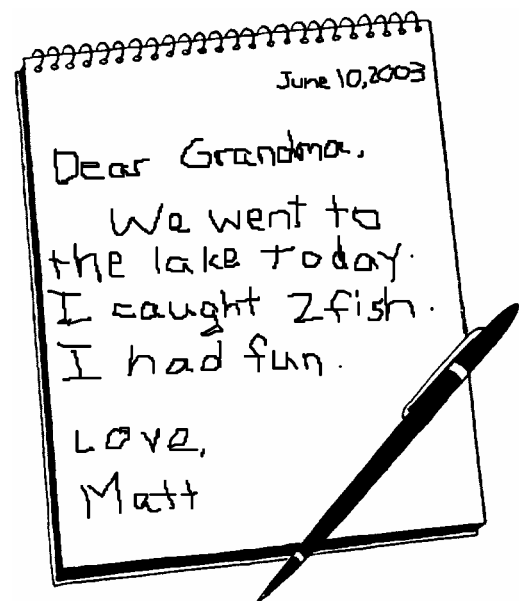 June 10, 2003
Dear Grandma,
We went to
the lake today.
I caught 2 fish.
I had fun.
Love,
Matt